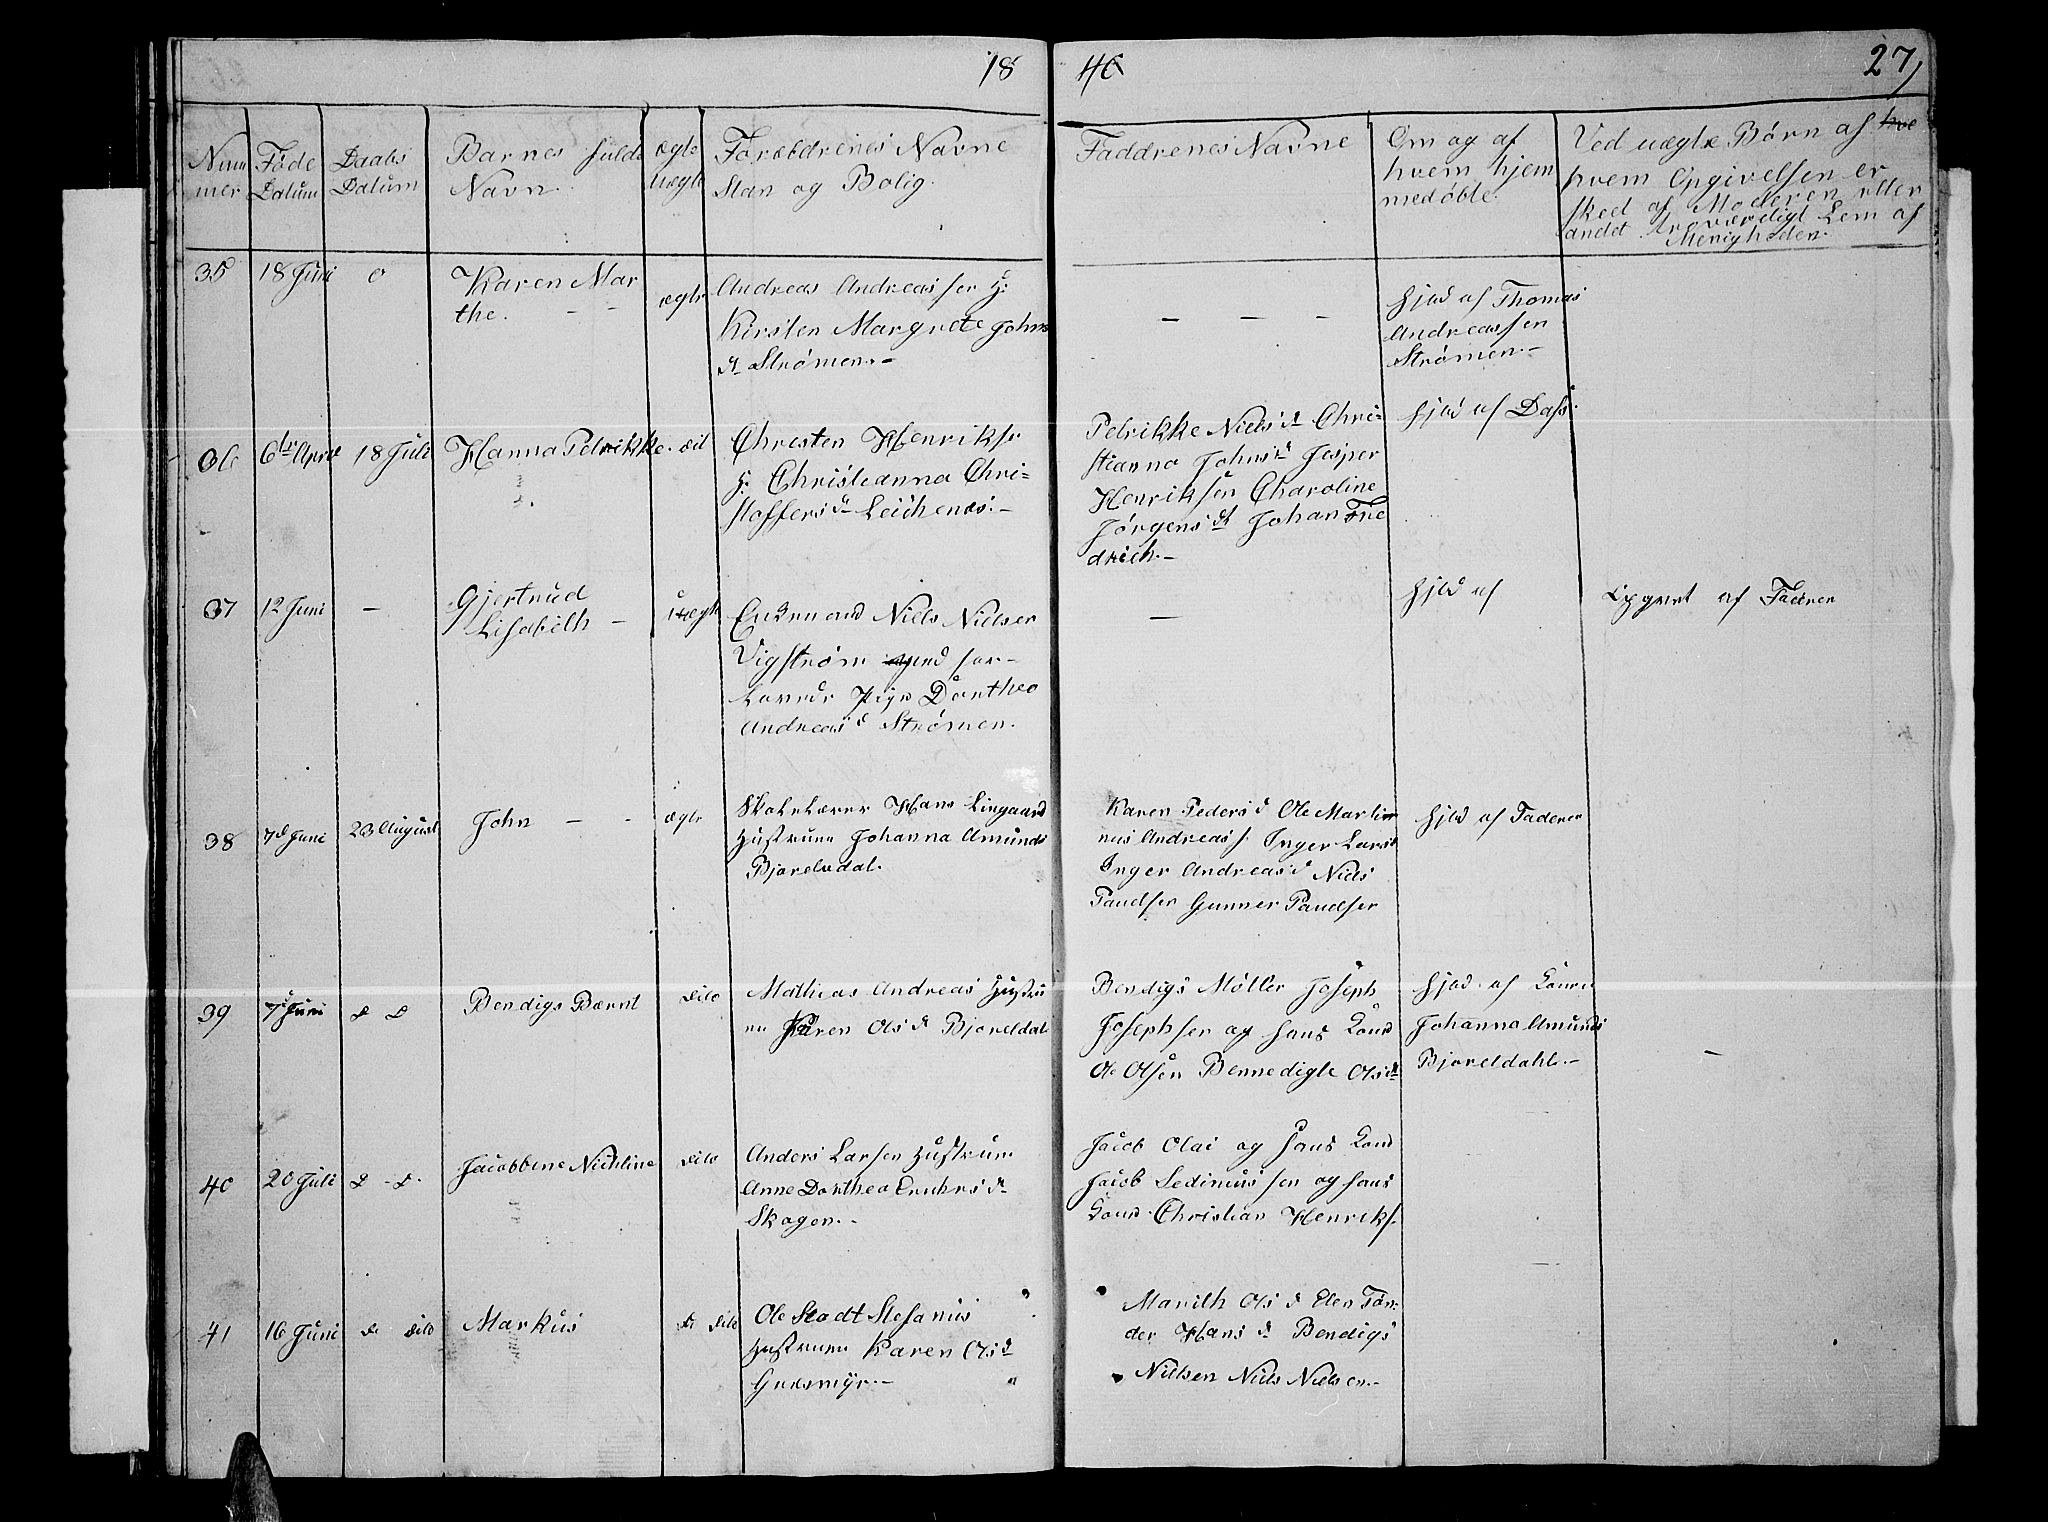 18 40 27
Num
mer
Føde
Datum
Daabs
Datum
Barnes fulde
Navn.
ægte
uægte
Foreldrenes Navne
Stan og Bolig.
Faddrenes Navne
Om og af
hvem hjem
medøbte.
Ved uægte Børn af hve
hvem Opgivelsen er
sked af Moderen eller
andet troværdigt Lem af
Menigheden.
35 18 Juni 0 Karen Mar
the. - -
ægte
Andreas Andreassen H:
Kirsten Margrete Johns
dt Strømen.-
- - -
hjød af Thomas
Andreassen
Strømen.-
36 6te April 18 Juli Hanna Petrikke. dit
Chresten Henriks.
H: Christianna Chri-
stoffersd
Petrikke Nielsd Chri-
stianna Johnsd Jesper
Henriksen Charoline
Jørgensdt Johan Fre
drich.-
hjød af Dass.
37 12 Juni - Gjertrud
Lisabeth -
Uægte
Enkemand Niels Nielsen
Vigstrøm og med for-
lovede Pige Dorthea
Andreasd Strømen.
-
hjød af
af Faderen
38 7d Juni 23 August John - - ægte
Skolelærer Hans Lingaard
Hustrue Johanna Amunds
Bjorelvdal.
Karen Pedersd Ole Marti
nus Andreass. Inger Larsd
Inger Andreasd Niels
Paulsen Gunner Paulsen
hjød af Faderen
39 7 Juni D D Bendigs Bærnt dito
Mathias Andreas Hustru
Karen Olsd Bjoreldal
Bendigs Møller Joseph
Josephsen og hans Kone
Ole Olsen Bennedigte Olsdt
hjød af Konen
Johanna Amunds
Bjoreldahl.-
-
40 20 Juli D - D. Jacobbene Nichline dito
Anders Larsen Hustrue
Anne Dorthea
Skogen.-
Jacob Olai og hans Kone
Jacob Sediniussen og hans
Kone Christian Henriks.
41 16 Juni D dito Markus D dito
Ole Stadt Stefanus
Hustrue Karen Olsd
Marith Olsd Elen Tøn-
der Hansd Bendigs
Nielsen Niels Nielsen.-